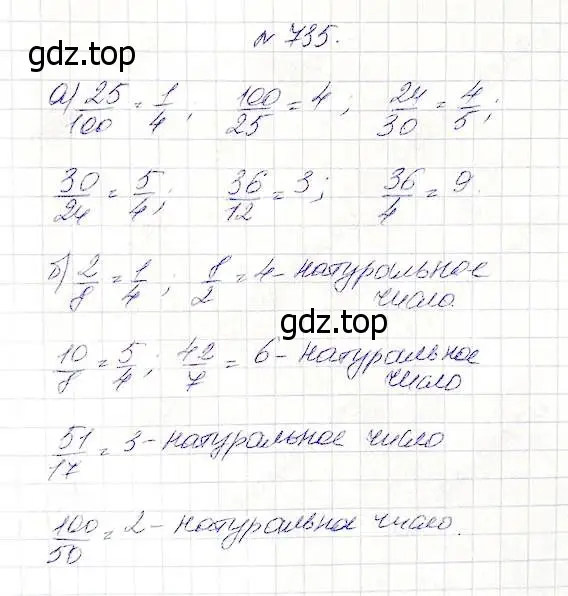 gdz.top
№ 735.
а) 25/100 = 1/4; 100/25 = 4; 24/30 = 4/5;
30/24 = 5/4; 36/12 = 3; 36/4 = 9.
б) 2/8 = 1/4; 8/2 = 4 - натуральное
число.
gdz.top
10/8 = 5/4; 42/7 = 6 - натуральное
число
51/17 = 3 - натуральное число
100/50 = 2 - натуральное число.